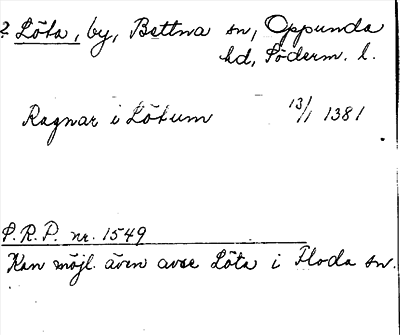 ? Löta, by, Bettna sn, Oppunda
hd, Söderm. l.
Ragnar i Lötum 13/1 1381
P.R.P. nr. 1549
Kan möjl. även avse Löta i Floda sn.